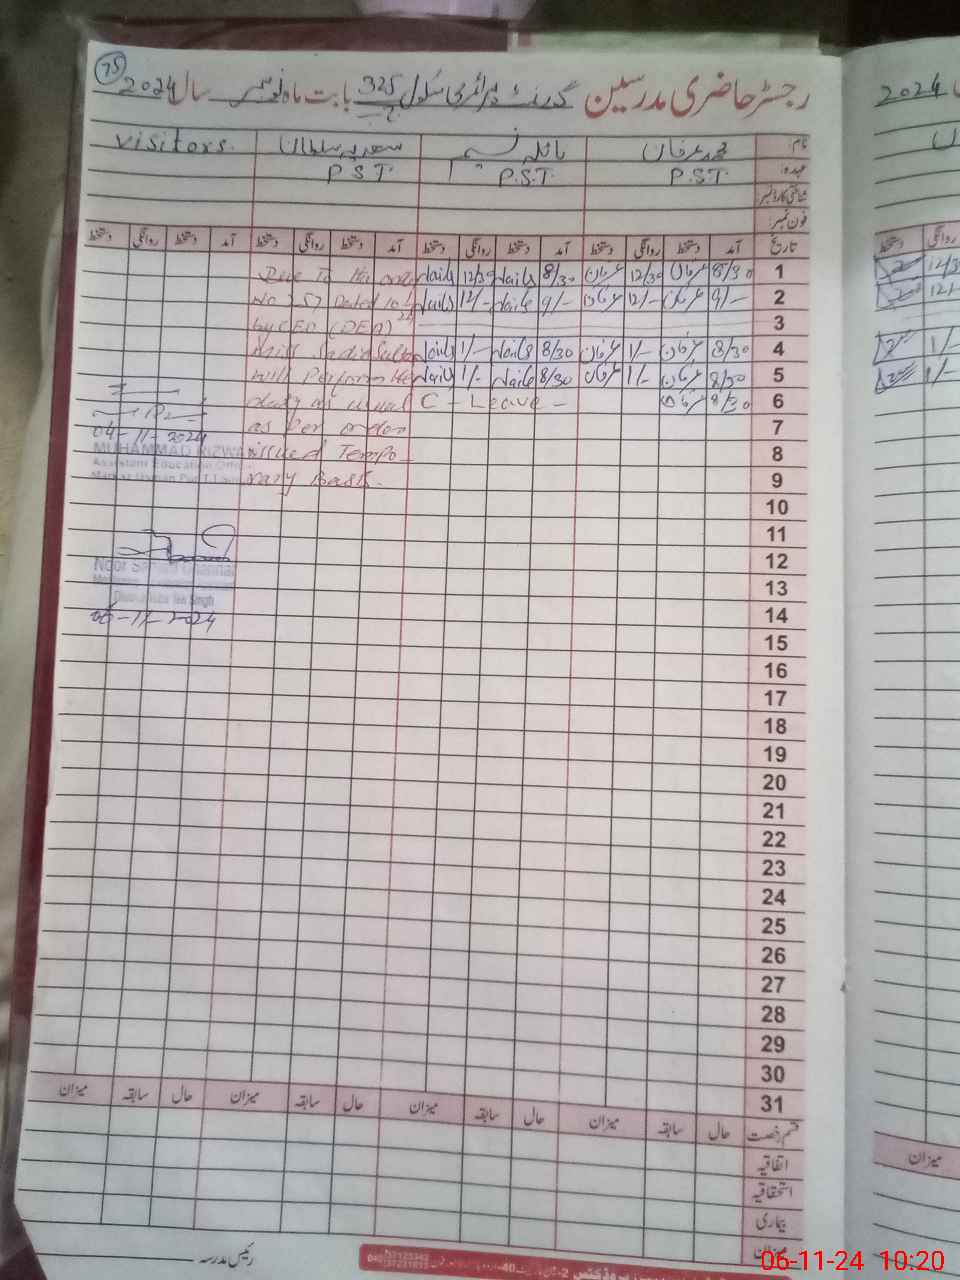 75
رجسٹر حاضری مدرسین گورنمنٹ پرائمری سکول 325 ج ب بابت ماہ نومبر سال 2024
نام: محمد عرفان نائلہ نسیم سعدیہ سلطان visitors.
عہدہ: P.S.T. P.S.T. P.S.T.
شناختی کارڈ نمبر:
فون نمبر:
تاریخ آمد دستخط روانگی دستخط آمد دستخط روانگی دستخط آمد دستخط روانگی دستخط آمد دستخط روانگی دستخط
1 8/30 عرفان 12/30 عرفان 8/30 Naila 12/30 Naila Due To the order
2 9/- عرفان 12/- عرفان 9/- Naila 12/- Naila No 757 Dated
3 by CEO (DEA)
4 8/30 عرفان 1/- عرفان 8/30 Naila 1/- Naila Miss Sadia Sultan
5 8/30 عرفان 1/- عرفان 8/30 Naila 1/- Naila will Perform the
6 8/30 عرفان C - Leave - duty as usual
7 as per order
8 issued Tempo
9 rary Basis.
10
11
12
13
14
15
16
17
18
19
20
21
22
23
24
25
26
27
28
29
30
31
04-11-2024
MUHAMMAD RIZWAN
Assistant Education Officer
Noor
Singh
06-11-2024
قسم رخصت حال سابقہ میزان حال سابقہ میزان حال سابقہ میزان حال سابقہ میزان
اتفاقیہ
استحقاقیہ
بیماری
میزان
رئیس مدرسہ
2024
دستخط روانگی
12/30
12/-
1/-
1/-
میزان
06-11-24 10:20